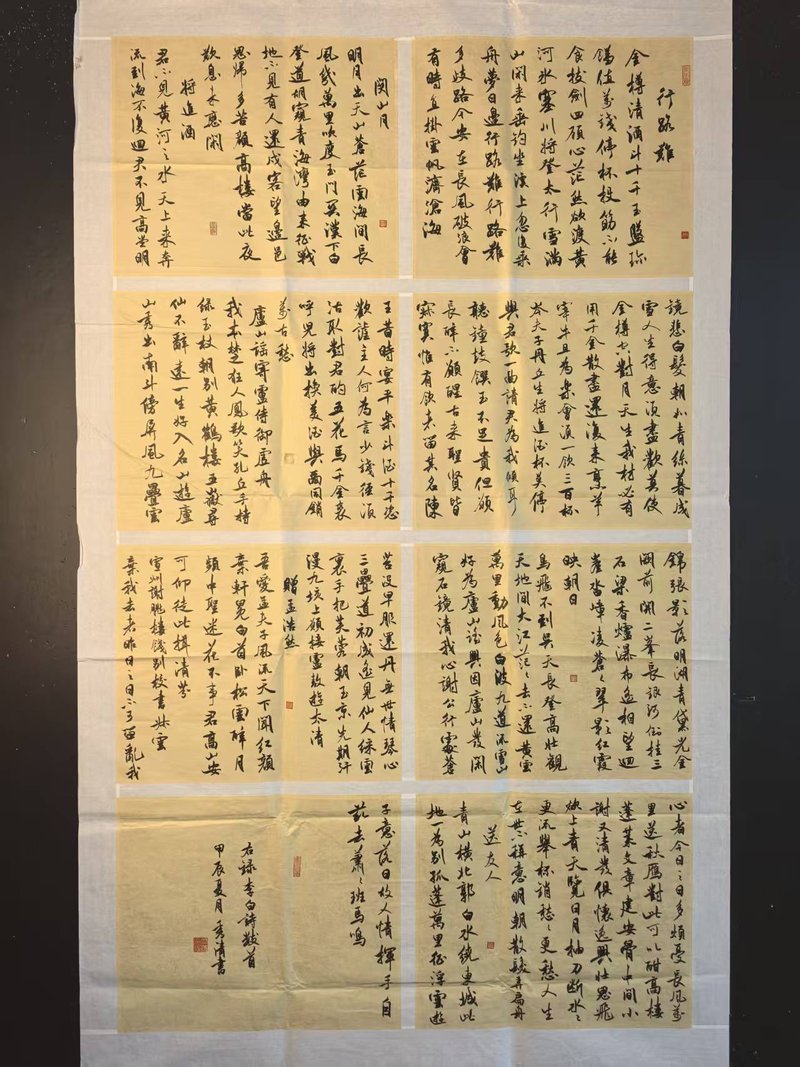 行路難
金樽清酒斗十千玉盤珎
饈值萬錢停杯投筯不能
食拔劍四顧心茫然欲渡黃
河冰塞川將登太行雪滿
山閑来垂釣坐溪上忽復乘
舟夢日邊行路難行路難
多歧路今安在長風破浪會
有時直掛雲帆濟滄海
関山月
明月出天山蒼茫雲海間長
風幾萬里吹度玉門関漢下白
登道胡窺青海灣由来征戰
地不見有人還戍客望邊邑
思歸多苦顏高樓當此夜
歎息未應閑
將進酒
君不見黃河之水天上来奔
流到海不復迴君不見高堂明
鏡悲白髮朝如青絲暮成
雪人生得意須盡歡莫使
金樽空對月天生我材必有
用千金散盡還復来烹羊
宰牛且為樂會須一飲三百杯
岑夫子丹丘生將進酒杯莫停
與君歌一曲請君為我傾耳
聽鐘鼓饌玉不足貴但願
長醉不願醒古来聖賢皆
寂寞惟有飲者留其名陳
王昔時宴平樂斗酒十千恣
歡謔主人何為言少錢徑須
沽取對君酌五花馬千金裘
呼兒將出換美酒與爾同銷
萬古愁
廬山謠寄盧侍御虛舟
我本楚狂人鳳歌笑孔丘手持
綠玉杖朝別黃鶴樓五嶽尋
仙不辭遠一生好入名山遊廬
山秀出南斗傍屏風九疊雲
錦張影落明湖青黛光金
闕前開二峯長銀河倒挂三
石梁香爐瀑布遙相望迴
崖沓嶂凌蒼々翠影紅霞
映朝日
鳥飛不到吳天長登高壯觀
天地間大江茫々去不還黃雲
萬里動風色白波九道流雪山
好為廬山謠興因廬山發閑
窺石鏡清我心謝公行處蒼
苔沒早服還丹無世情琴心
三疊道初成遙見仙人綵雲
裏手把芙蓉朝玉京先期汗
漫九垓上願接盧敖遊太清
贈孟浩然
吾愛孟夫子風流天下聞紅顏
棄軒冕白首臥松雲醉月
頻中聖迷花不事君高山安
可仰徒此揖清芬
宣州謝朓樓餞別校書叔雲
棄我去者昨日之日不可留亂我
心者今日之日多煩憂長風萬
里送秋鴈對此可以酣高樓
蓬萊文章建安骨中間小
謝又清發俱懷逸興壯思飛
欲上青天覽日月抽刀斷水々
更流舉杯銷愁々更愁人生
在世不稱意明朝散髮弄扁舟
送友人
青山橫北郭白水繞東城此
地一為別孤蓬萬里征浮雲遊
子意落日故人情揮手自
茲去蕭々班馬鳴
右錄李白詩數首
甲辰夏月秀清書